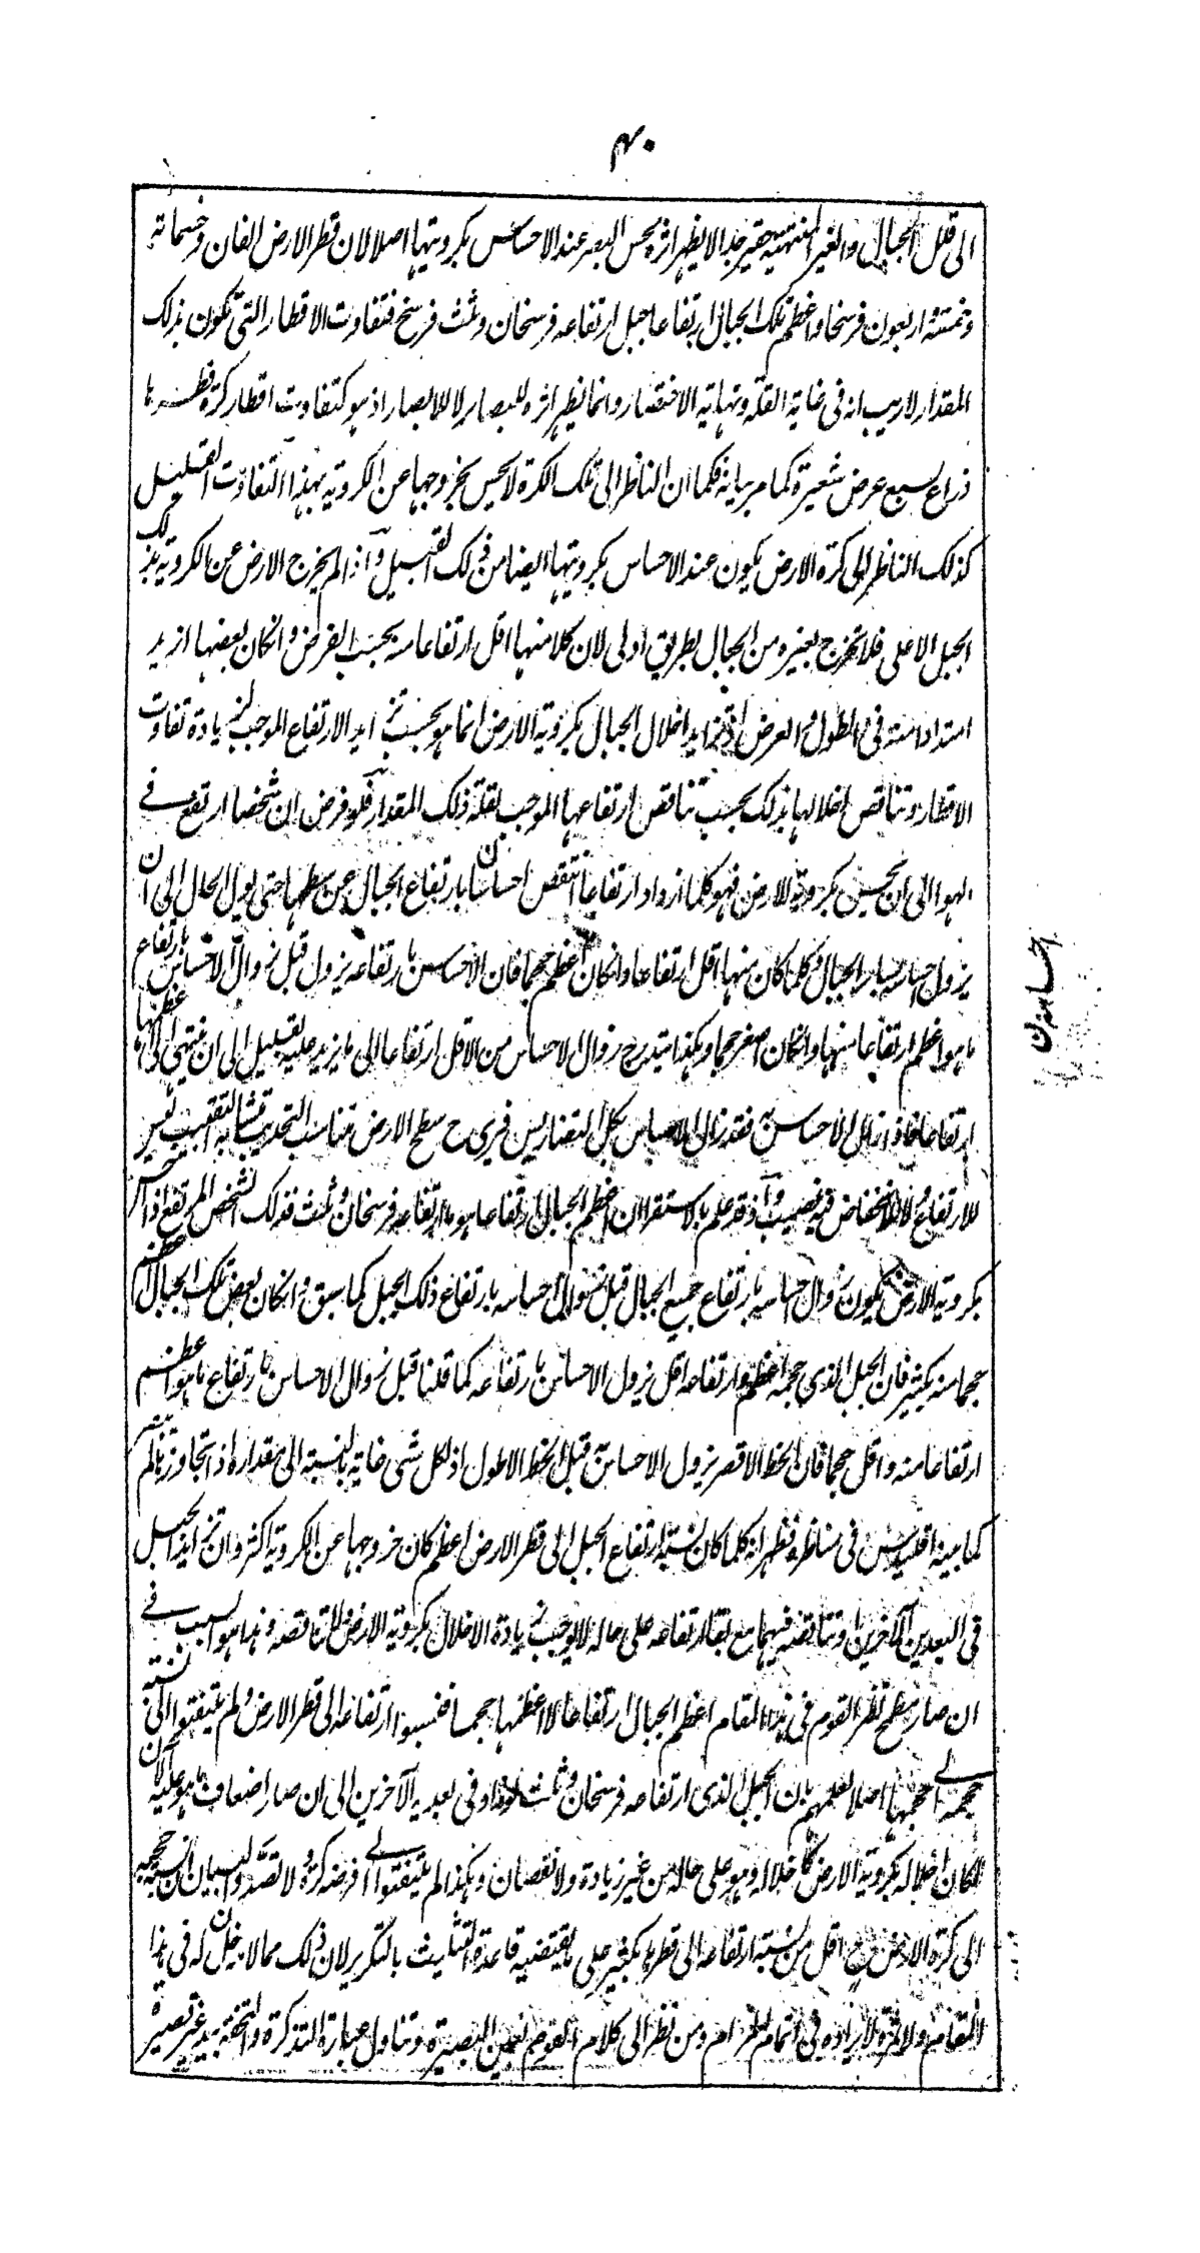 ۴۰
الى قلل الجبال والغير المنتهية حقير جدا لا يظهر اثره بحس البصر عند الاحساس بكرويتها اصلا لان قطر الارض الفان وخمسمائة
وخمسة واربعون فرسخا واعظم تلك الجبال ارتفاعا جبل ارتفاعه فرسخان وثلث فرسخ فتفاوت الاقطار التى تكون بذلك
المقدار لا ريب انه فى غاية القلة ونهاية الاختصار وانما يظهر اثره للبصائر لا للابصار اذ هو كتفاوت اقطار كرة قطرها
ذراع بسبع عرض شعيرة كما مر بيانه فكما ان الناظر الى تلك الكرة لا يحس بخروجها عن الكروية بهذا التفاوت القليل
كذلك الناظر الى كرة الارض يكون عند الاحساس بكرويتها ايضا من ذلك القبيل واذا لم يخرج الارض عن الكروية بذلك
الجبل الاعلى فلا تخرج بغيره من الجبال بطريق اولى لان كلا منها اقل ارتفاعا منه بحسب الفرض وان كان بعضها ازيد
امتدادا منه فى الطول والعرض اذ تزايد اخلال الجبال بكروية الارض انما هو بحسب تزايد الارتفاع الموجب لزيادة تفاوت
الاقطار وتناقص اخلالها بذلك بحسب تناقص ارتفاعها الموجب لقلة ذلك المقدار فلو فرض ان شخصا ارتفع فى
الهواء الى ان يحس بكروية الارض فهو كلما ازداد ارتفاعا انتقص احساسا بارتفاع الجبال عن سطحها حتى يؤل الحال الى ان
يزول احساسه بسائر الجبال فكلما كان منها اقل ارتفاعا وان كان اعظم حجما فان الاحساس بارتفاعه يزول قبل زوال الاحساس بارتفاع
ما هو اعظم ارتفاعا منها وان كان اصغر حجما وهكذا يتدرج زوال الاحساس من الاقل ارتفاعا الى ما يزيد عليه بقليل الى ان ينتهى الى اعظمها
ارتفاعا فاذا زال الاحساس به فقد زال الاحساس بكل التضاريس فيرى ح سطح الارض متناسب التحديب متشابه التقبيب ليس
للارتفاع ولا للانخفاض فيه نصيب واذ قد علم بالاستقراء ان اعظم الجبال ارتفاعا هو ما ارتفاعه فرسخان وثلث فذلك الشخص المرتفع اذا احس
بكروية الارض يكون زوال احساسه بارتفاع جميع الجبال قبل زوال احساسه بارتفاع ذلك الجبل كما سبق وان كان بعض تلك الجبال اعظم
حجما منه بكثير فان الجبل الذى حجمه اعظم وارتفاعه اقل يزول الاحساس بارتفاعه كما قلنا قبل زوال الاحساس بارتفاع ما هو اعظم
ارتفاعا منه واقل حجما فان الخط الاقصر يزول الاحساس به قبل الخط الاطول اذ لكل شى غاية بالنسبة الى مقداره اذا تجاوزتها لم
كما بينه اقليدس فى مناظره فظهر انه كلما كان نسبة ارتفاع الجبل الى قطر الارض اعظم كان خروجها عن الكروية اكثر وان تزايد الجبل
فى البعدين الآخرين او تناقصه فيهما مع بقاء ارتفاعه على حاله لا يوجب زيادة الاخلال بكروية الارض ولا تناقصه وهذا هو السبب فى
ان صار مطمح نظر القوم فى هذا المقام اعظم الجبال ارتفاعا لا اعظمها حجما فنسبوا ارتفاعه الى قطر الارض ولم يلتفتوا الى نسبة
حجمه الى حجمها اصلا لعلمهم بان الجبل الذى ارتفاعه فرسخان وثلث لو زاد فى بعديه الآخرين الى ان صار اضعاف ما هو عليه الآن
لكان اخلاله بكروية الارض كاخلاله وهو على حاله من غير زيادة ولا نقصان وهكذا لم يلتفتوا الى ولا لبيان ان نسبة حجمه
الى كرة الارض اقل من نسبة ارتفاعه الى قطرها بكثير على ما يقتضيه قاعدة التثليث بالتكرير لان ذلك مما لا دخل له فى هذا
المقام ولا ثمرة لايراده فى اتمام المرام ومن نظر الى كلام القوم بعين البصيرة وتناول عبارة التذكرة والتحفة بيد غير قصيرة
احساسه ن